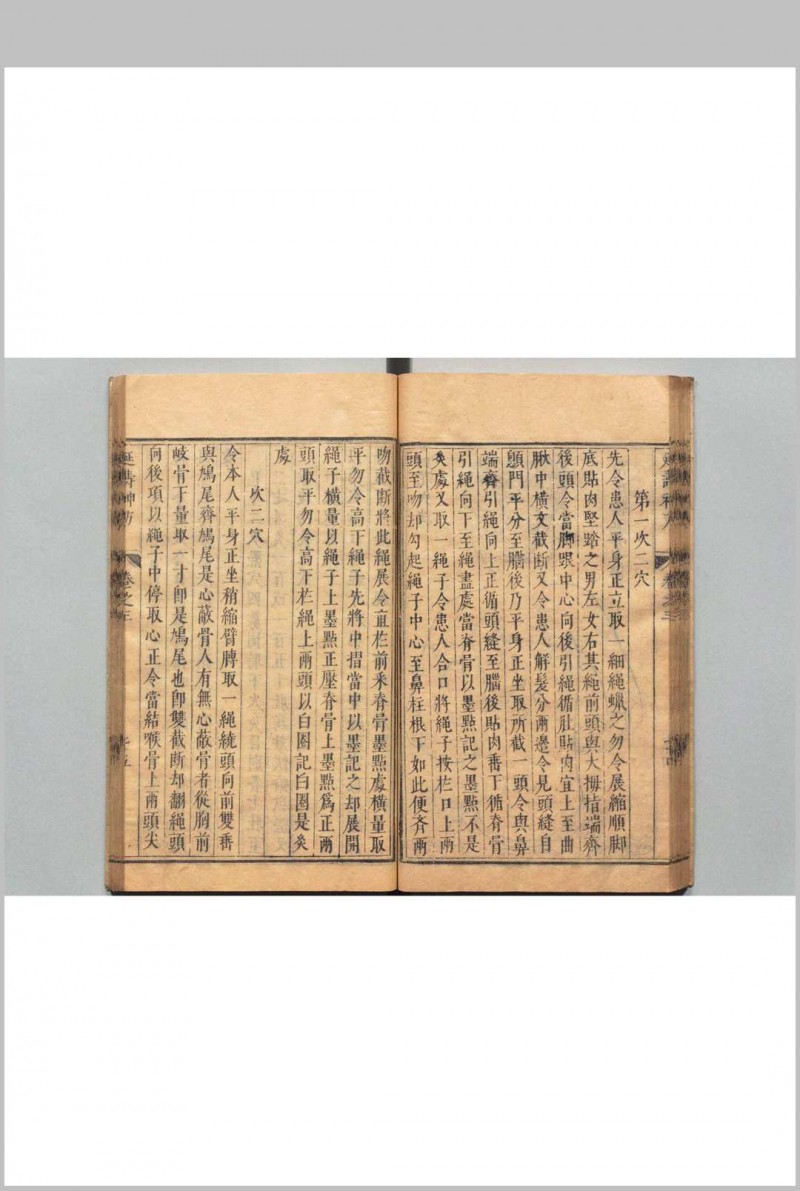 第一次二穴
先令患人平身正立取一細繩蠟之勿令展縮順脚
底貼肉堅踏之男左女右其繩前頭與大拇指端齊
後頭令當脚跟中心向後引繩循肚貼肉宜上至曲
䐐中橫文截斷又令患人解髮分兩邊令見頭縫自
顖門平分至腦後乃平身正坐取所截一頭令與鼻
端齊引繩向上正循頭縫至腦後貼肉垂下循脊骨
引繩向下至繩盡處當脊骨以墨點記之墨點不是
矣處又取一繩子令患人合口將繩子按於口上兩
頭至吻却勾起繩子中心至鼻柱根下如此便齊兩
吻截斷將此繩展令直於前來脊骨墨點處橫量取
平勿令高下繩子先將中摺當中以墨記之却展開
繩子橫量以繩子上墨點正壓脊骨上墨點爲正兩
頭取平勿令高下於繩上兩頭以白圈記白圈是矣
處
次二穴
令本人平身正坐稍縮臂膊取一繩繞頭向前雙垂
與鳩尾齊鳩尾是心蔽骨人有無心蔽骨者從胸前
岐骨下量取一寸卽是鳩尾也卽雙截斷却翻繩頭
向後項以繩子中停取心正令當結喉骨上兩頭尖
卷之三